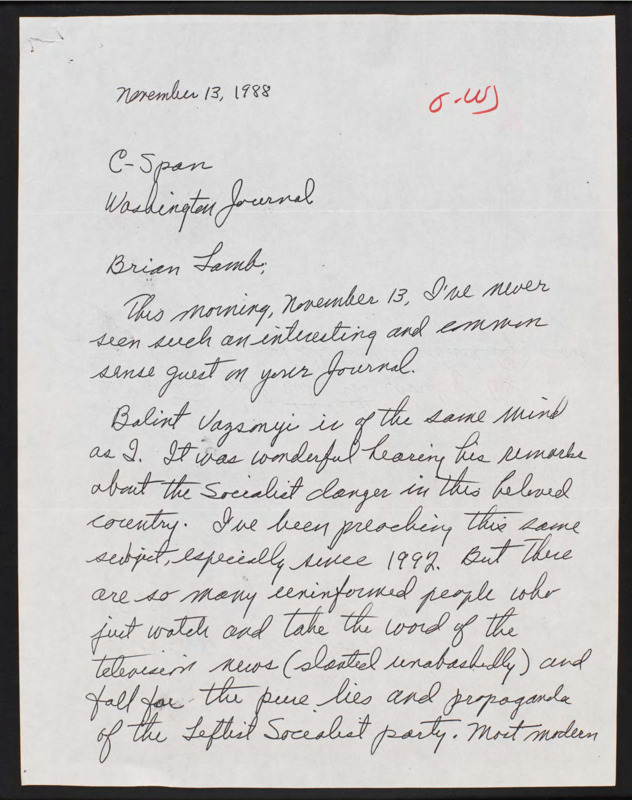 November 13, 1988
C-Span
Washington Journal
Brian Lamb,
This morning, November 13, I've never
seen such an interesting and common
sense guest on your Journal.
Balint Vazsonyi is of the same mind
as I. It was wonderful hearing his remarks
about the Socialist danger in this beloved
country. I've been preaching this same
subject, especially since 1992. But there
are so many uninformed people who
just watch and take the word of the
television news (slanted unabashedly) and
fall for the pure lies and propaganda
of the Leftist Socialist party. Most modern